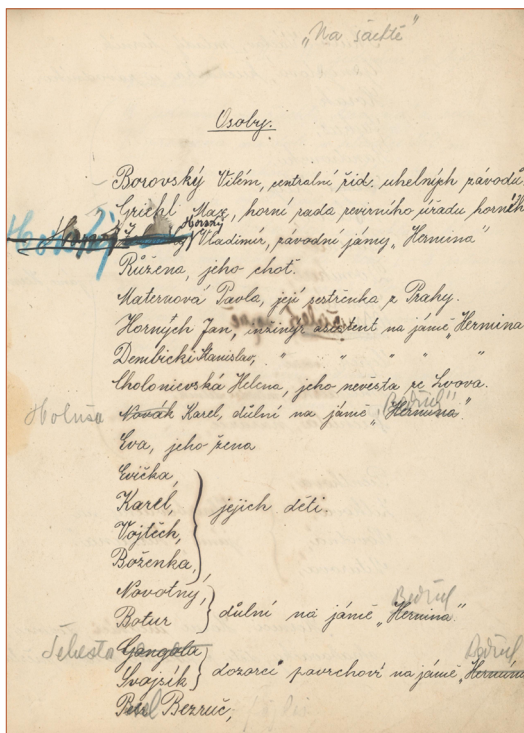 „Na šachtě"
Osoby.
Borovský Vilém, centralní řid. uhelných závodů
Griehl Max, horní rada revirního úřadu horního
Horský Horský Vladimír, závodní jámy „Hermina"
Růžena, jeho choť.
Maternová Pavla, její sestřenka z Prahy.
Horných Jan, inženýr assistent na jámě „Hermina
Dembicki Stanislav, " " " "
Choloniewská Helena, jeho nevěsta ze Lvova.
Holuša Novák Karel, důlní na jámě „Hermina" Bedřich"
Eva, jeho žena
Evička,
Karel,
Vojtěch,
Boženka,
jejich děti
Novotný,
Botur
důlní na jámě „Hermina" Bedřich
Šebesta Gongola
Svajsík
dozorci povrchoví na jámě „Hermina Bedřich
Bezruč,